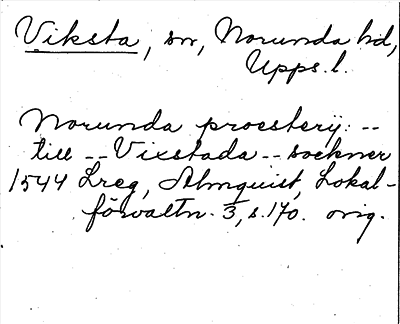 Viksta, sn, Norunda hd,
Upps. l.
Norunda proesterij: --
till -- Vixstada -- sockner
1544 Lreg, Almquist, Lokal-
förvaltn. 3, s. 170. orig.